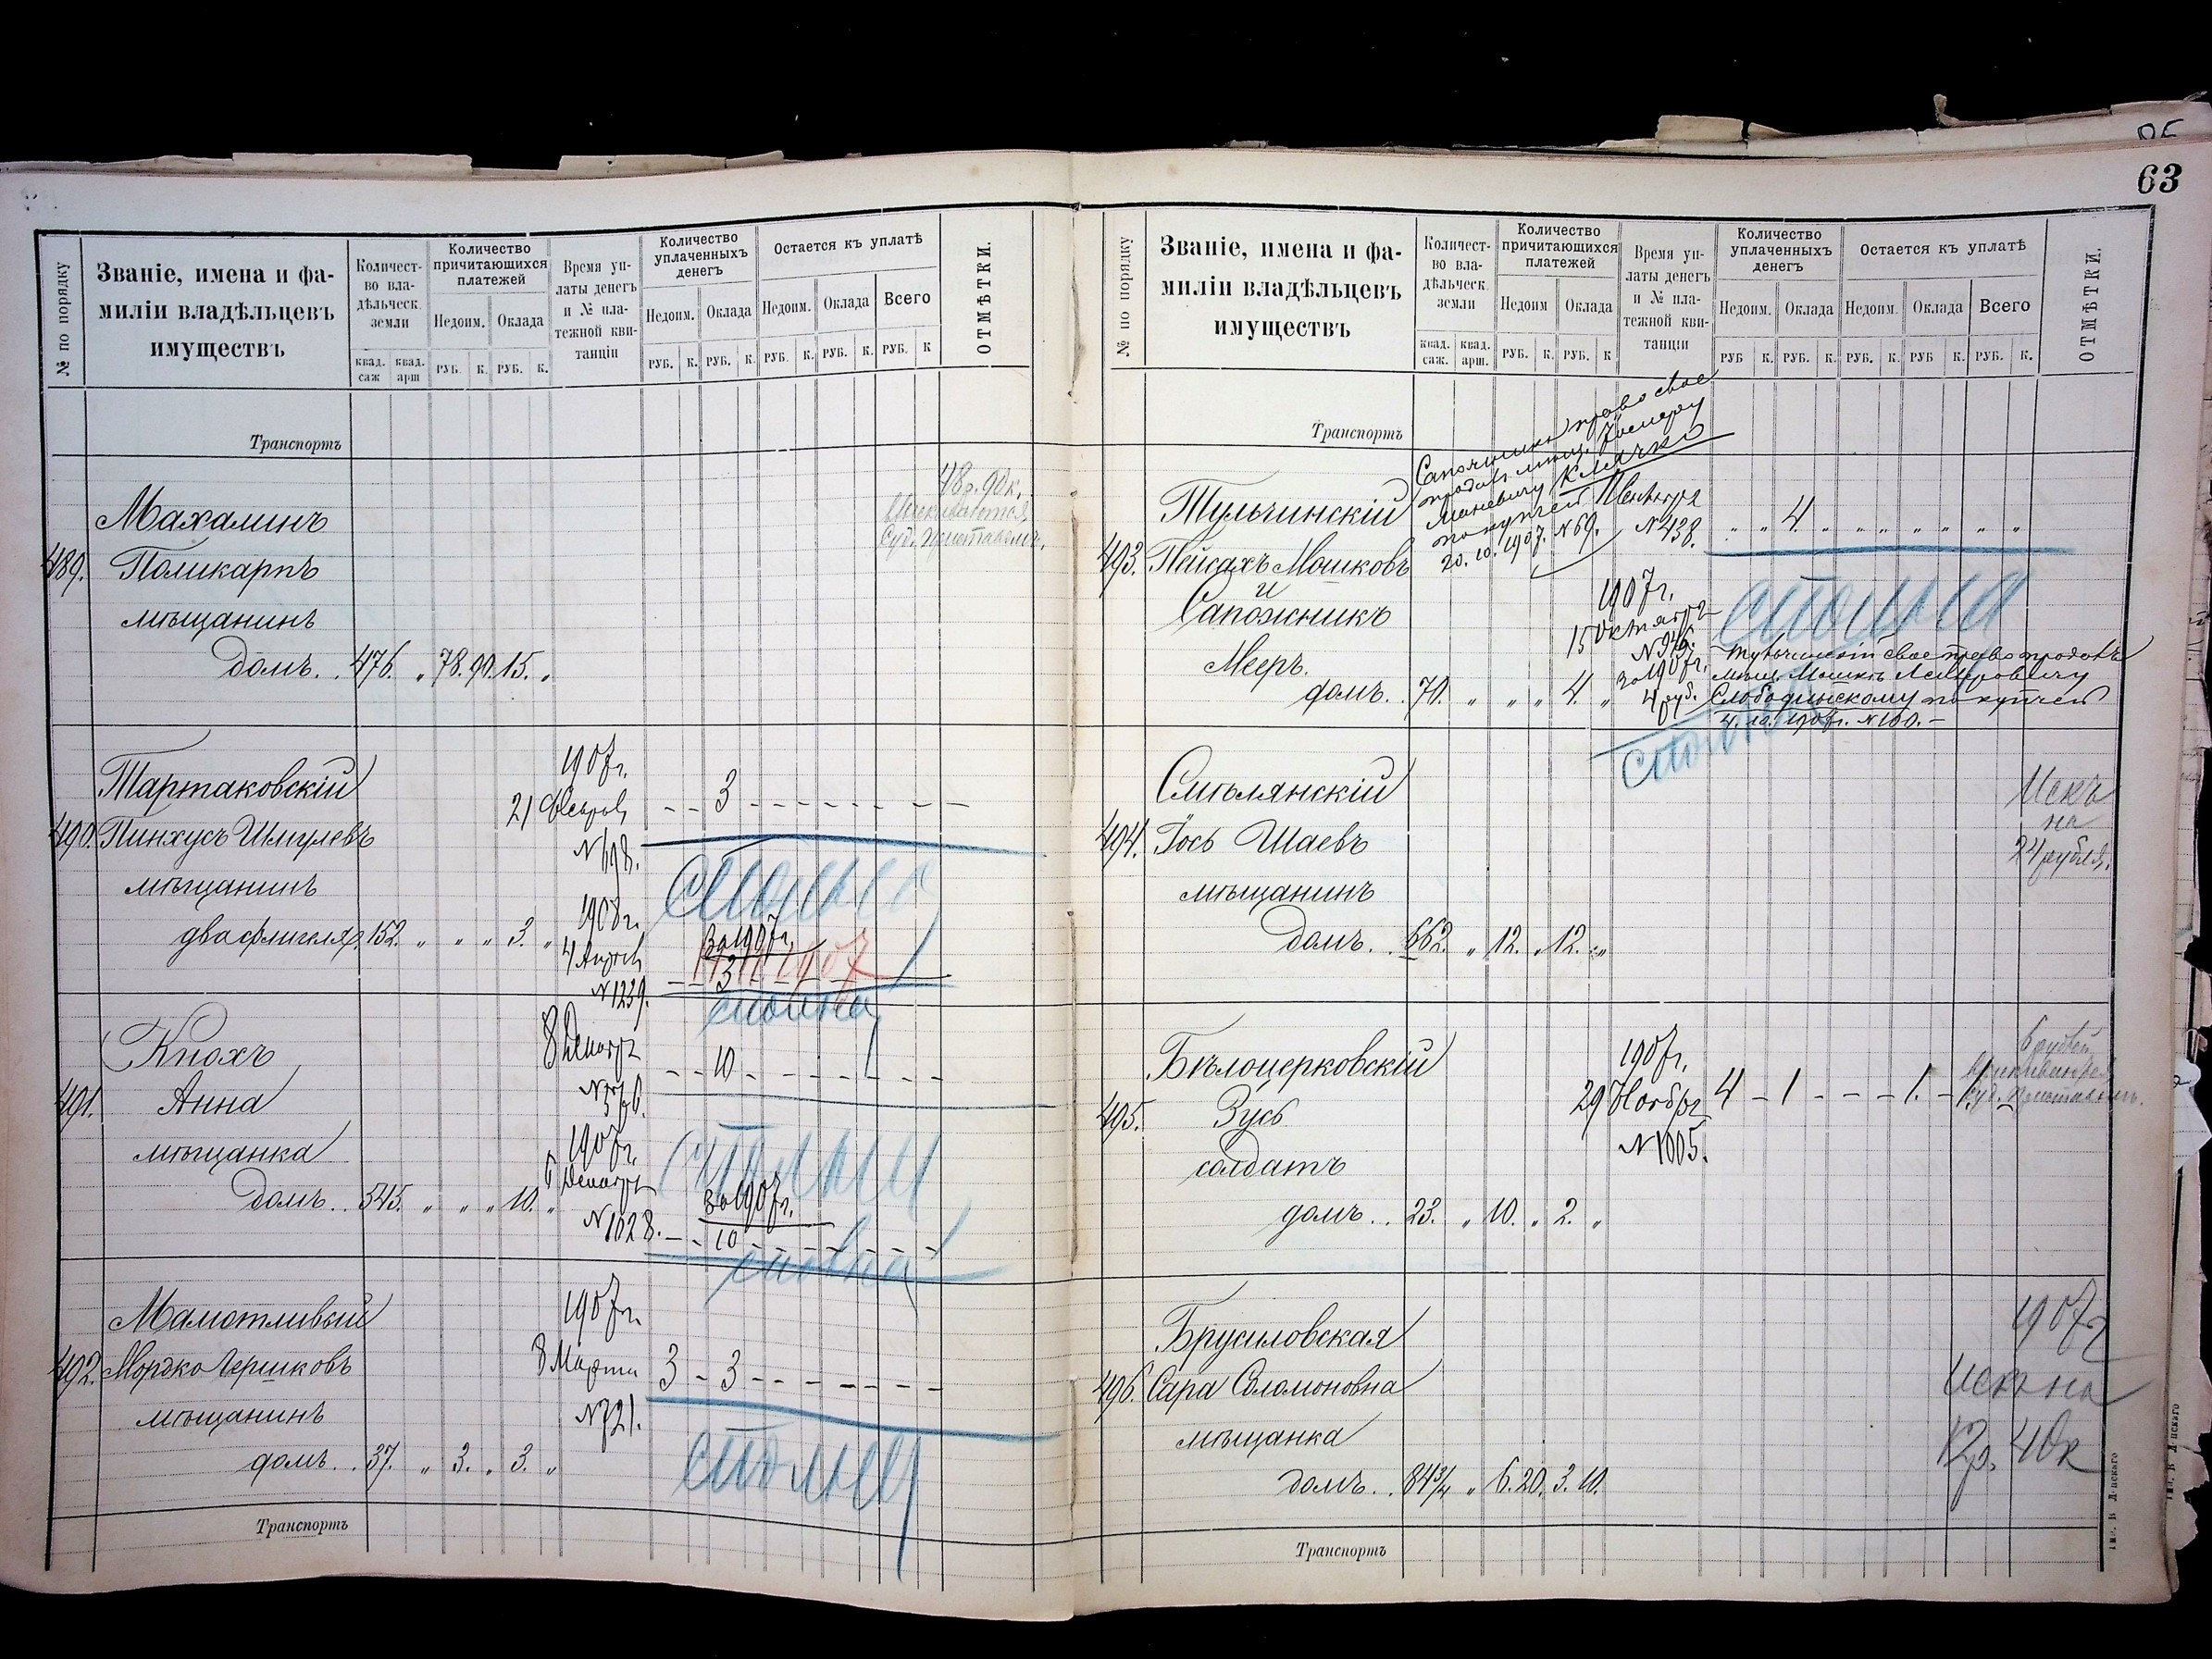 63
№ по порядку
Званіе, имена и фа-
миліи владѣльцевъ
имуществъ
Количест-
во вла-
дѣльческ.
земли
квад. саж
квад. арш
Количество
причитающихся
платежей
Недоим. Оклада
РУБ. К. РУБ. К.
Время уп-
латы денегъ
и № пла-
тежной кви-
танціи
Количество
уплаченныхъ
денегъ
Недоим. Оклада
РУБ. К. РУБ. К.
Остается къ уплатѣ
Недоим. Оклада Всего
РУБ. К. РУБ. К. РУБ. К
ОТМѢТКИ.
Транспортъ
48р. 90к.
Взыскиваются
Суд. Приставомъ.
Махалинъ
489. Поликарпъ
мѣщанинъ
домъ. . 476. „ 78. 90. 15. „
Тартаковскій
490. Пинхусъ Шмулевъ
мѣщанинъ
два флигеля. 152. „ „ „ 3. „
1907г.
21 Февраля
№ 698.
3
1908г.
№ 1239.
За 1907г.
3
Кнохъ
491. Анна
мѣщанка
домъ. . 545. „ „ „ 10. „
8 Декабря
10
1907г.
Декабря
№ 1028.
За 1907г.
10
Мамотливый
492. Мордко Гершковъ
мѣщанинъ
домъ. . 37. „ 3. „ 3. „
1907г.
8 Марта
№ 721.
3 - 3
Транспортъ
№ по порядку
Званіе, имена и фа-
миліи владѣльцевъ
имуществъ
Количест-
во вла-
дѣльческ.
земли
квад. саж.
квад. арш.
Количество
причитающихся
платежей
Недоим Оклада
РУБ. К. РУБ. К
Время уп-
латы денегъ
и № пла-
тежной кви-
танціи
Количество
уплаченныхъ
денегъ
Недоим. Оклада
РУБ К. РУБ. К.
Остается къ уплатѣ
Недоим. Оклада Всего
РУБ. К. РУБ К. РУБ. К.
ОТМѢТКИ.
Транспортъ
Сапожникъ право свое
продалъ мѣщ.
Маневичу Клячко
по купчей
20. 10. 1907. № 69.
Тульчинскій
493. Пейсахъ Мошковъ
и
Сапожникъ
Мееръ.
домъ. . 70. „ „ „ 4. „
№ 438.
4
1907г.
15 Октября
За 1907г.
4 руб.
Тульчинскій свое право продалъ
мѣщ. Мошкѣ
Слободянскому по купчей
4. 10. 1907г. № 100. –
Смѣлянскій
494. Іось Шаевъ
мѣщанинъ
домъ. . 662. „ 12. „ 12. „
Искъ
на
24 рубля.
Бѣлоцерковскій
495. Зусь
солдатъ
домъ. . 23. „ 10. „ 2. „
1907г.
29 Ноября
№ 1005.
4 – 1 – – – 1. –
6 рублей
взыскиваются
Суд. Приставомъ.
Брусиловская
496. Сара Соломоновна
мѣщанка
домъ. . 84¾ „ 6. 20. 3. 10.
1907г
Искъ на
12р. 40к
Транспортъ